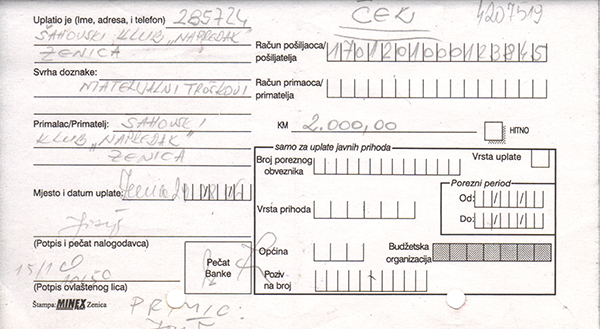 Uplatio je (Ime, adresa, i telefon) 285724
ŠAHOVSKI KLUB „NAPREDAK"
ZENICA
Svrha doznake:
MATERIJALNI TROŠKOVI
Primalac/Primatelj: ŠAHOVSKI
KLUB „NAPREDAK"
ZENICA
Mjesto i datum uplate: Zenica
(Potpis i pečat nalogodavca)
(Potpis ovlaštenog lica)
Štampa: MINEX Zenica
Pečat
Banke
ČEK
4207519
Račun pošiljaoca/
pošiljatelja 1701201000123845
Račun primaoca/
primatelja
KM 2.000,00 HITNO
samo za uplate javnih prihoda
Broj poreznog
obveznika
Vrsta uplate
Vrsta prihoda
Porezni period
Od: / /
Do: / /
Općina
Budžetska
organizacija
Poziv
na broj